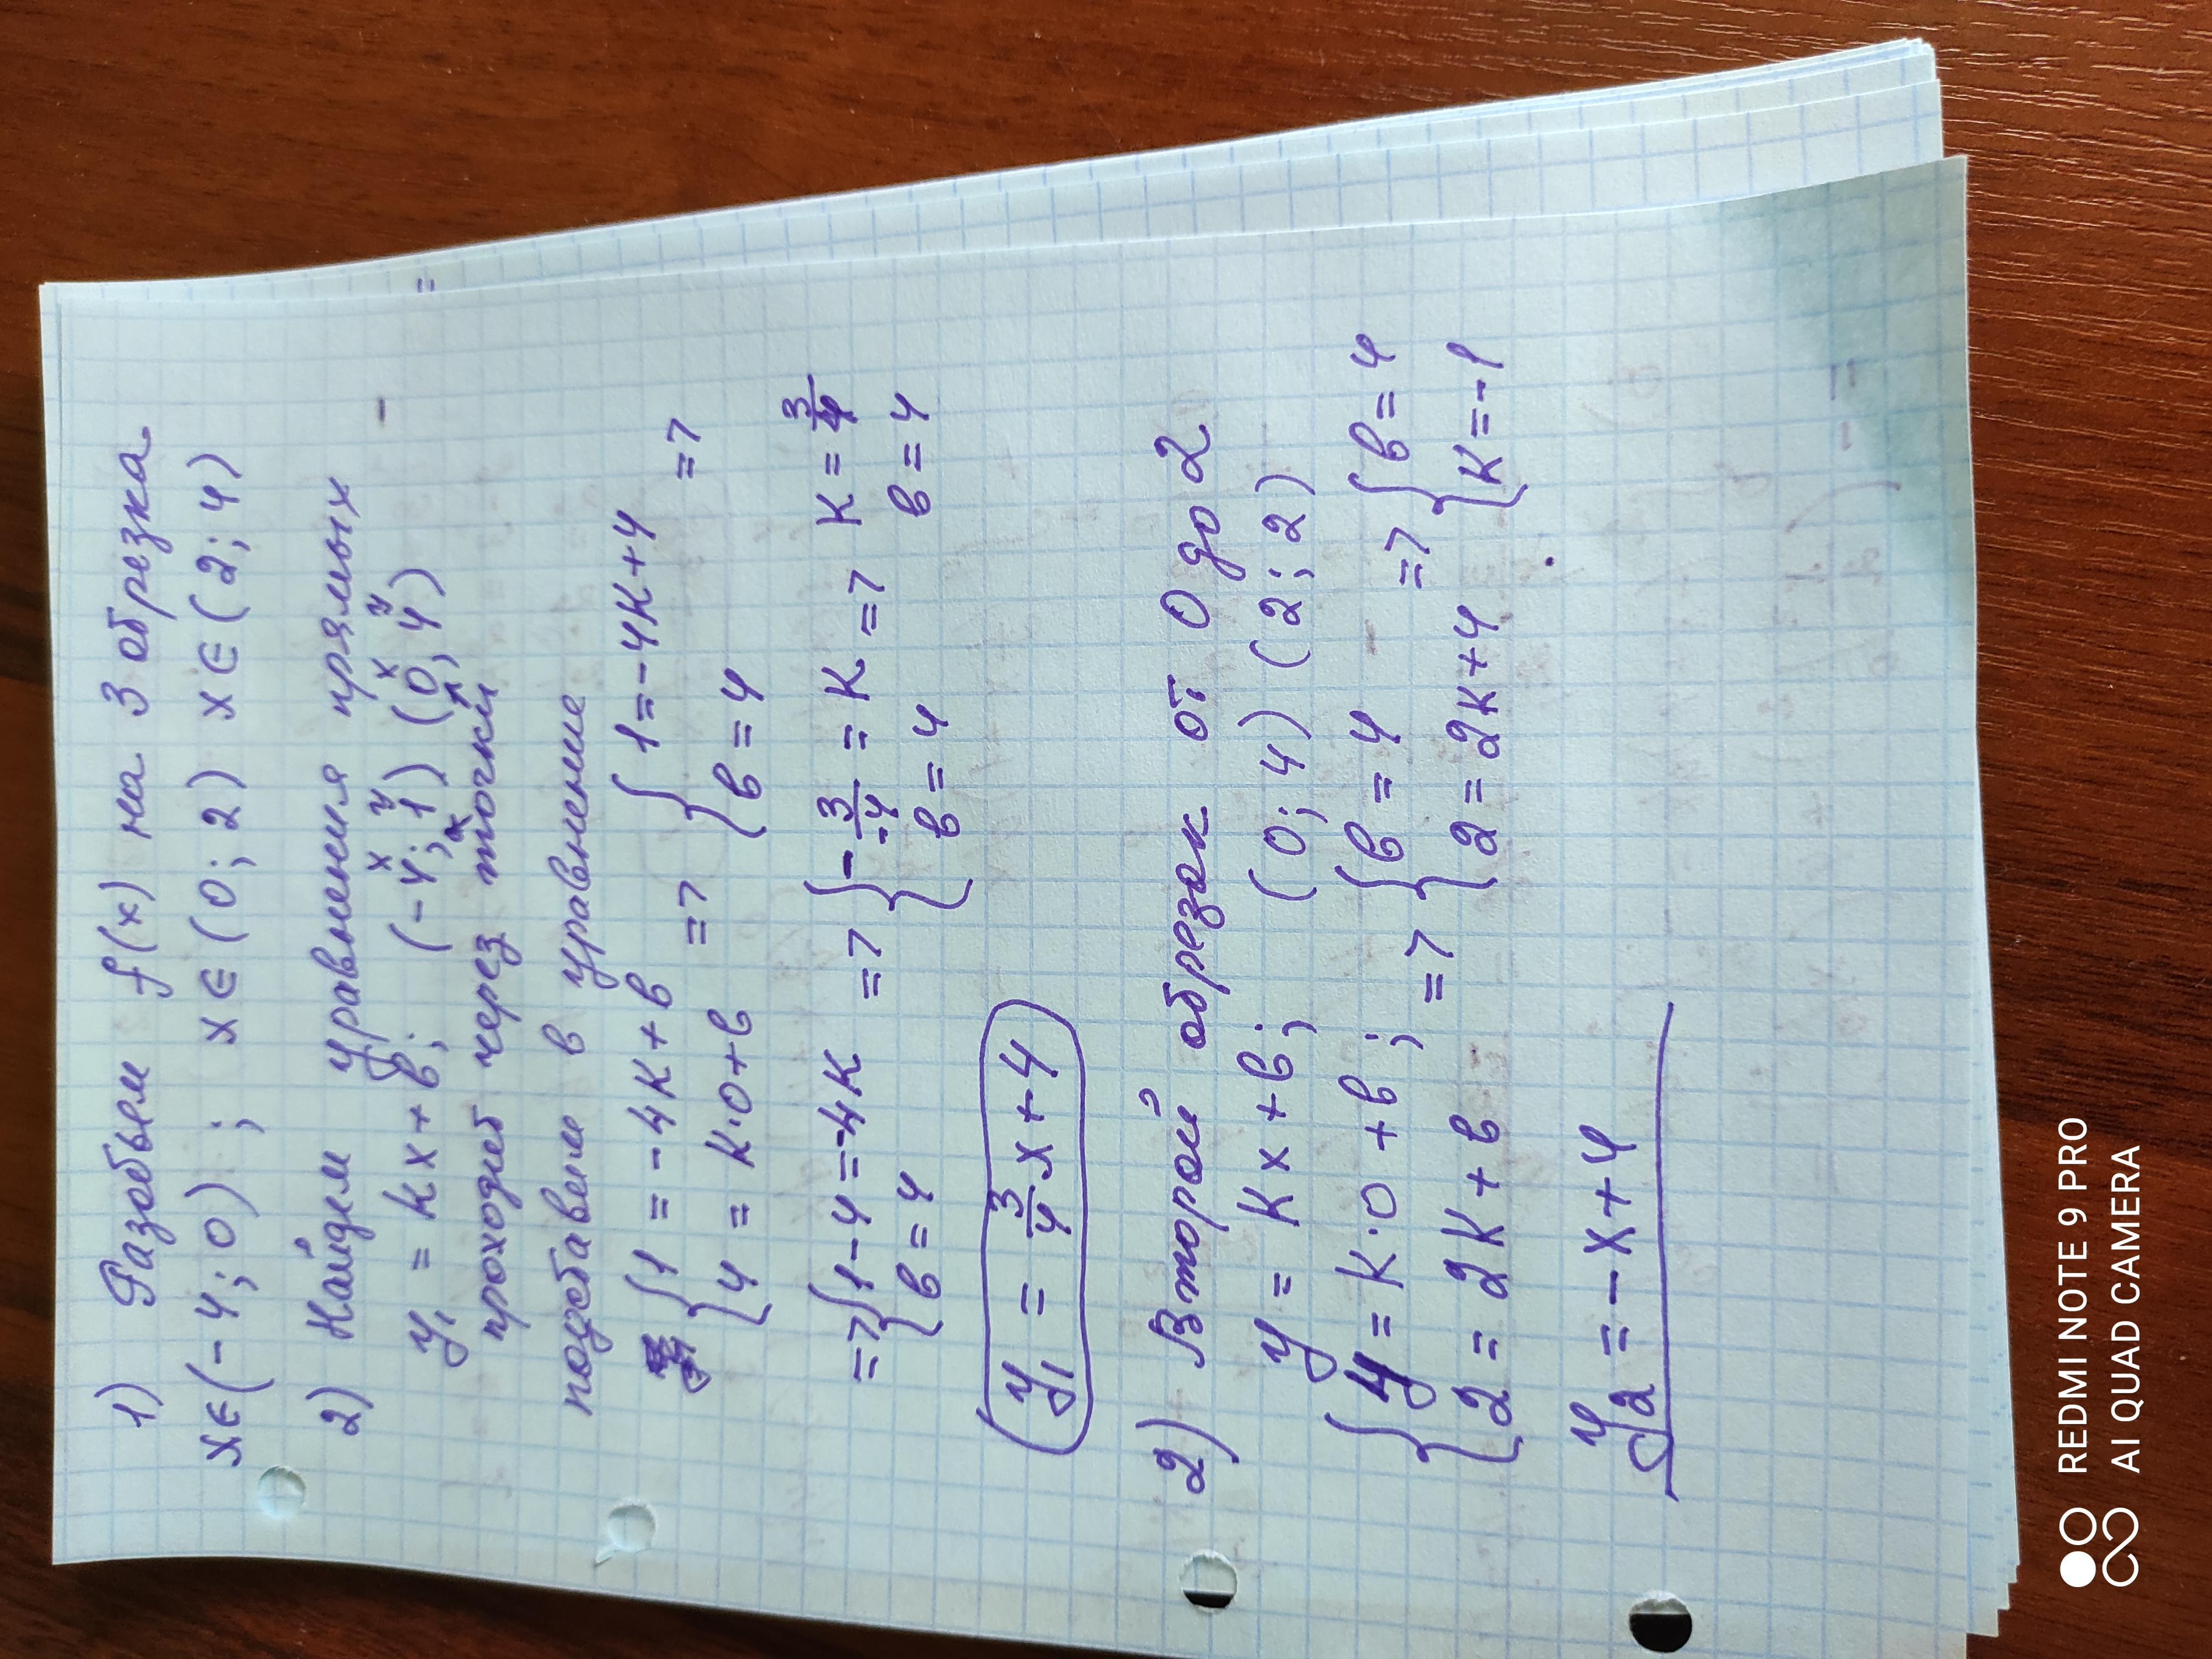 1) Разобьем f(x) на 3 отрезка
x∈(-4;0) ; x∈(0;2) x∈(2;4)
2) Найдем уравнения прямых -
y₁ = kx+b; (-4;1) (0,4)
x y x y
проходит через точки
подставим в уравнение
{1 = -4k+b => {1=-4k+4 =>
{4 = k·0+b {b=4
=> {1-4=-4k => {--3/-4=k => k=3/4
{b=4 b=4 b=4
y₁ = 3/4x+4
2) Второй отрезок от 0 до 2
y = kx+b; (0;4) (2;2)
{4=k·0+b; => {b=4 => {b=4
{2=2k+b {2=2k+4 {k=-1
y₂=-x+4
REDMI NOTE 9 PRO
AI QUAD CAMERA